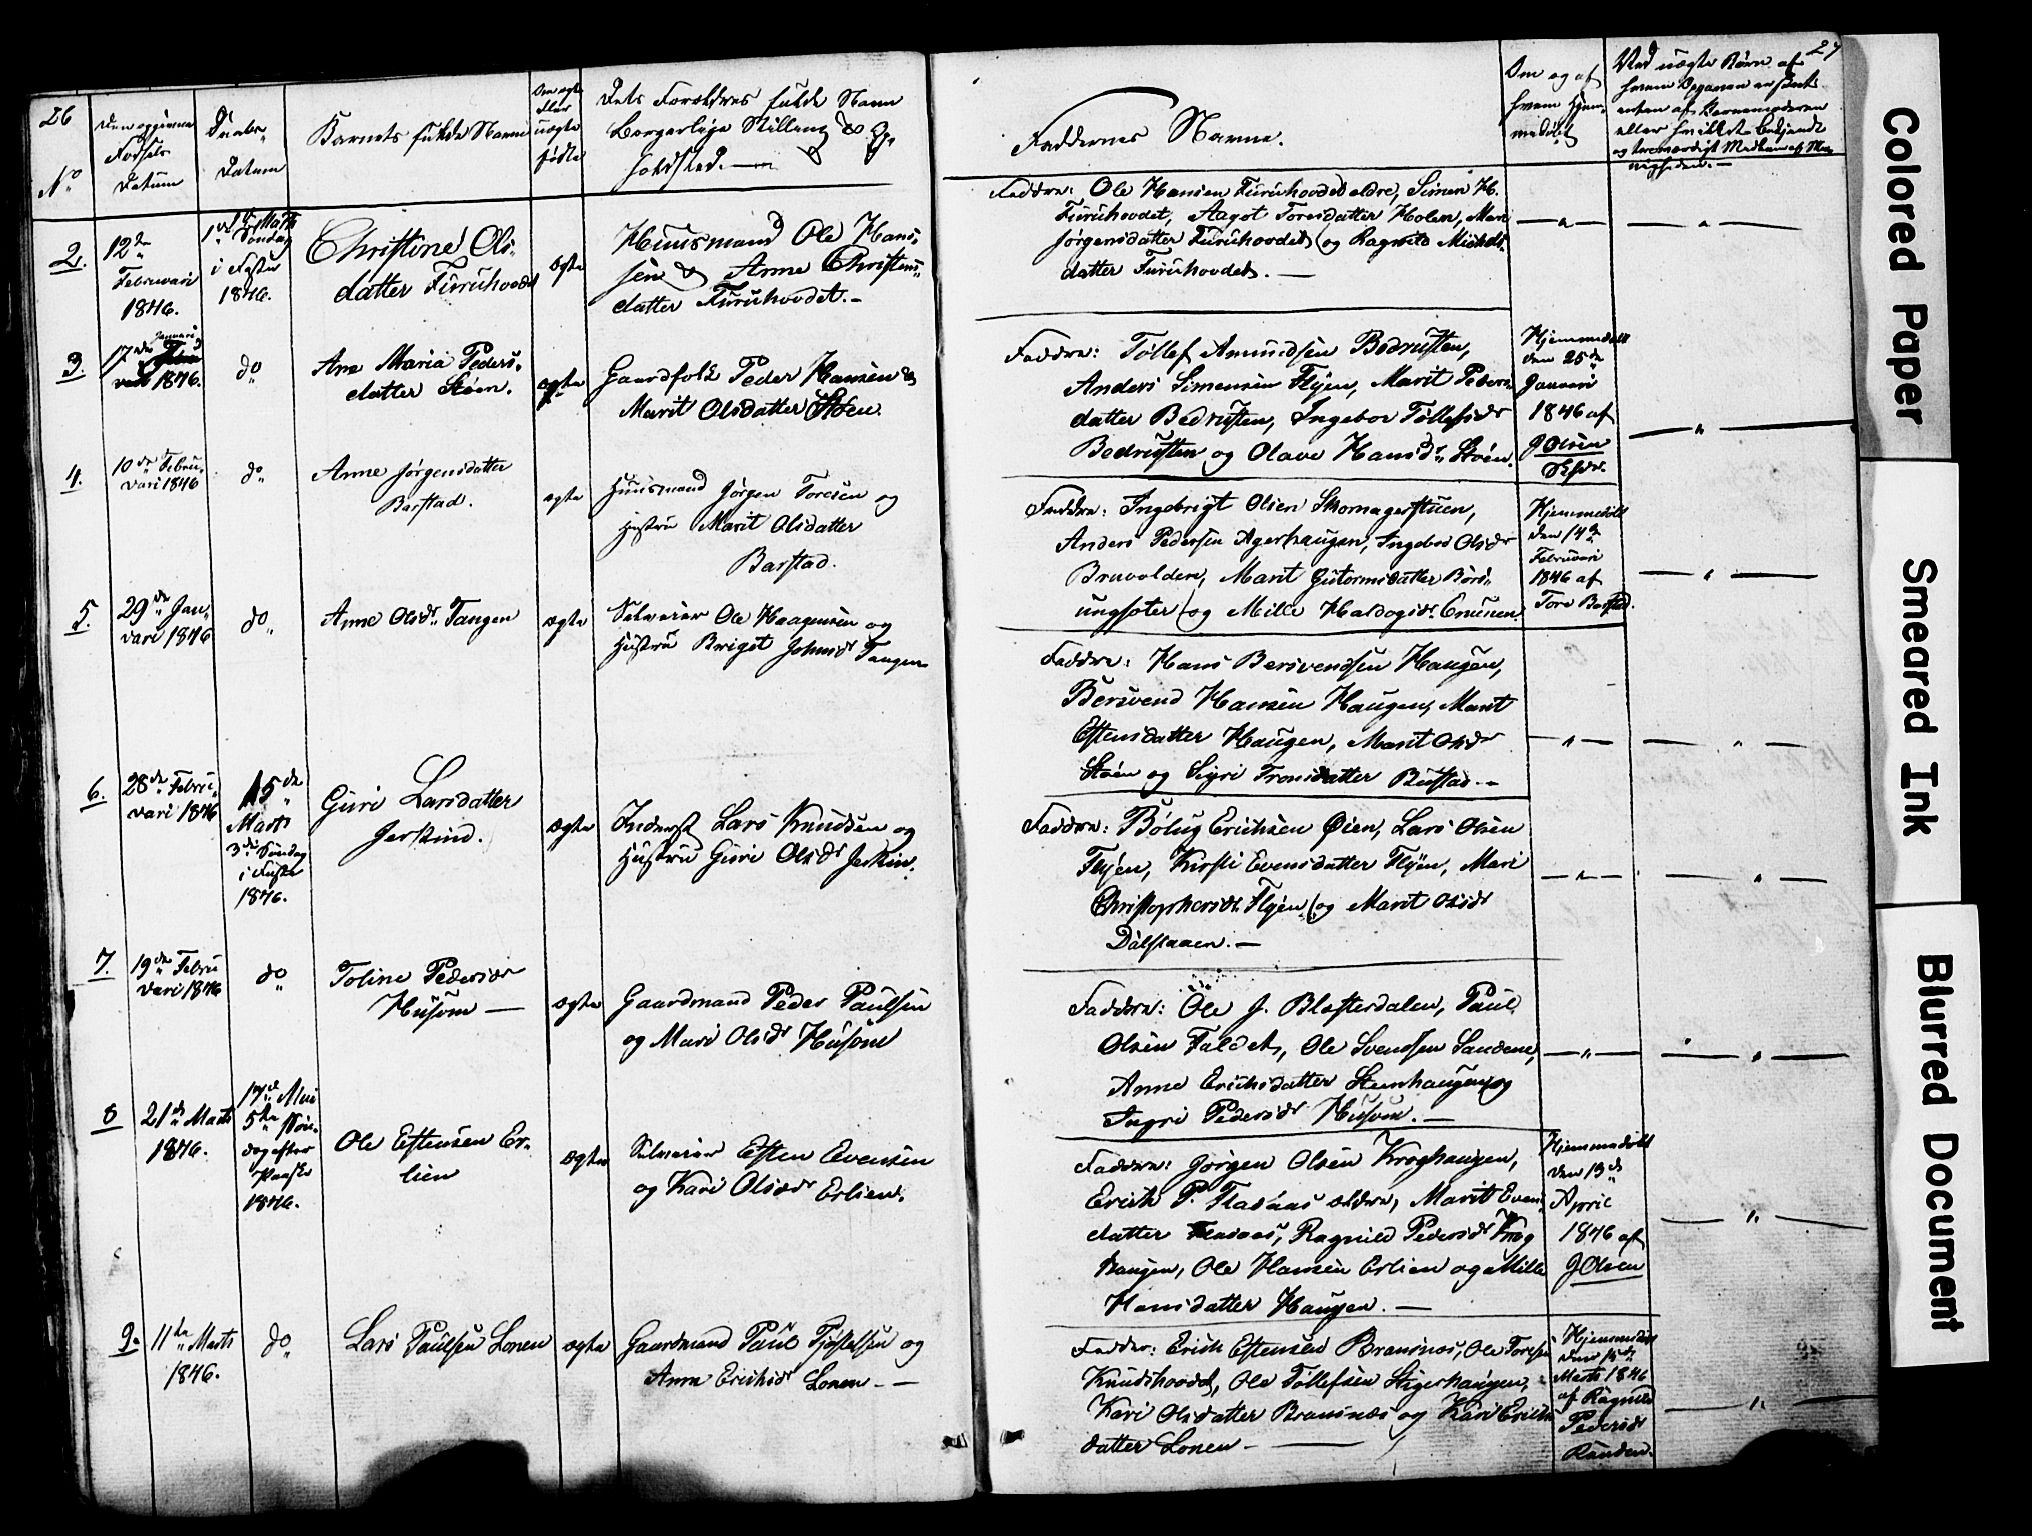 26
No
Den opgivne
Fødsels
Datum
Daabs-
Datum
Barnets fulde Navn
Om ægte
eller
uægte
født
Dets Forældres fulde Navn
Borgerlige Stilling &
Faddernes Navne.
Om og af
hvem hjem-
medøbt
27
Ved uægte Børn af
2.
12te
Februari
1846.
1ste Marts
Søndag
i Faste
1846.
Christine Ols-
datter Furuhovdet
ægte
Huusmand Ole Han-
sen & Anne Christens-
datter Furuhovdet.-
Faddre: Ole Hansen Furuhovdet ældre, Simen H.
Furuhovdet, Aagot Toresdatter Holen, Mari
Jørgensdatter Furuhovdet og Ragnild Mikkels-
datter Furuhovdet. —
3.
17de Januari
1846.
do
Ane Maria Peders-
datter Støen.
ægte
Gaardfolk Peder Hansen &
Marit Olsdatter Støen.
Faddre: Tollef Amundsen Bedrusten,
Anders Simensen Flyen, Marit Peders-
datter Bedrusten, Ingebor Tollefsdr
Bedrusten og Olave Hansdr Støen.
Hjemmedøbt
den 25de
Januari
1846 af
J Olsen
4.
10de Febru-
vari 1846
do
Anne Jørgensdatter
Barstad.
ægte
Huusmand Jørgen Toresen og
Hustru Marit Olsdatter
Barstad.
Faddre: Ingebrigt Olsen Skomagerstuen,
Anders Pedersen Agerhaugen, Ingebor Olsdr
Bruvolden, Marit Gutormsdatter
og Mille
Hjemmedøbt
den 14de
Februvari
1846 af
Tore Barstad.
5.
29de Jan-
vari 1846
do
Anne Olsdr Tangen
ægte
Selveier Ole Haagensen og
Hustru Briget Johnsdr Tangen
Faddre: Hans Bersvendsen Haugen,
Bersvend Hansen Haugen, Marit
Estensdatter Haugen, Marit Olsdr
Støen og Sigri Tronsdatter Bustad. -
6.
28de Febru-
vari 1846
15de
Marts
3die Søndag
i Faste
1846.
Guri Larsdatter
Jerkind.
ægte
Inderst Lars Knudsen og
Hustru Guri Olsdr Jerkin.
Faddre: Bølug Erichsen Øien, Lars Olsen
Flyen, Kirsti Evensdatter Flyen, Mari
Christophersdr Flyen og Marit Olsdr
Dalstaaen. —
7.
19de Febru
vari 1846
do
Toline Pedersdr
Husom —
ægte
Gaardmand Peder Paulsen
og Mari Olsdr Husom
Faddre: Ole J. Blæsterdalen, Paul
Olsen Faldet, Ole Svendsen Sandene,
Anne Erichsdatter Steenhaugen og
Ingri Pedersdr Husom. —
8
21de Marts
1846.
17de Mai
5te Søn-
dag efter
Paaske
1846.
Ole Estensen Er-
lien
ægte
Selveier Esten Evensen
og Kari Olsdr Erlien.
Faddre: Jørgen Olsen Kroghaugen,
Erich P. Fladaas ældre, Marit Evens-
datter Fladaas, Ragnild Pedersdr Krog
haugen, Ole Hansen Erlien og Mille
Hansdatter Haugen. —
Hjemmedøbt
den 13de
April
1846 af
J Olsen
9.
11te Marts
1846.
do
Lars Paulsen Lonen
ægte
Gaardmand Paul Tjøstelsen og
Anne Erichsdr Lonen -
Fadder: Erich Estensen Bransnæs, Ole Toresen
Knudshovdet, Ole Tollefsen Stigerhaugen,
Kari Olsdatter Bransnæs og Kari Erichs
datter Lonen —
Hjemmedøbt
den 15de
Marts 1846
af Ragnild
Pedersdr
Randen.
Colored Paper
Smeared Ink
Blurred Document